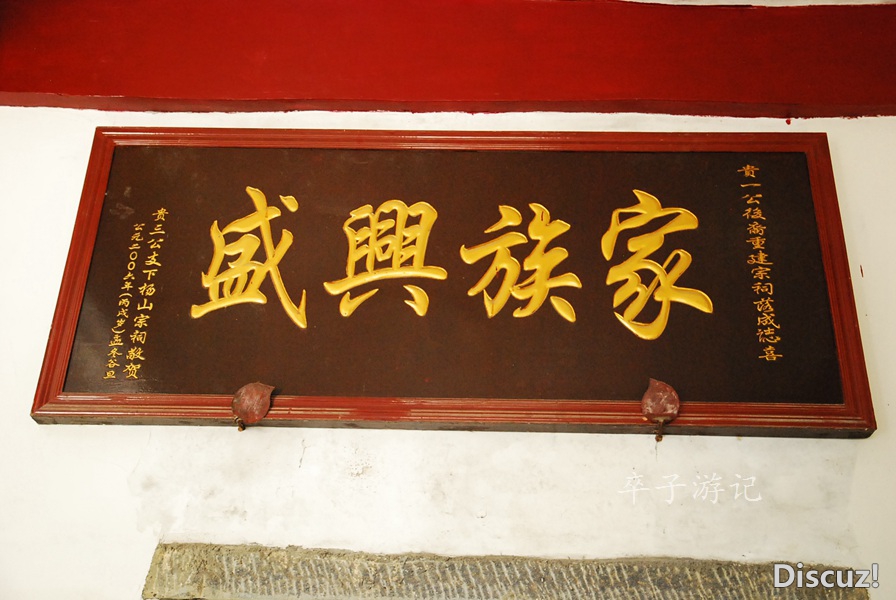 貴一公後裔重建宗祠落成誌喜
家族興盛
貴三公支下杨山宗祠敬贺
公元二00六年(丙戌岁)孟冬谷旦
卒子游记
Discuz!